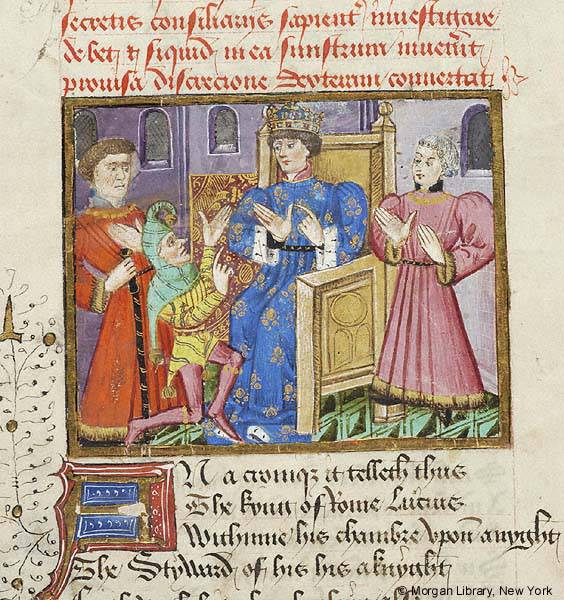 secretis consiliariis sapient' inuestigare
debet et si quid in ea sinistrum inuen'it
prouisa discrecione dexterum conuertat
IN a croniqe it telleth thus
The kyng of Rome lucius
Withinne his chambre vpon a nyght
The Styward of his his a knyght
© Morgan Library, New York